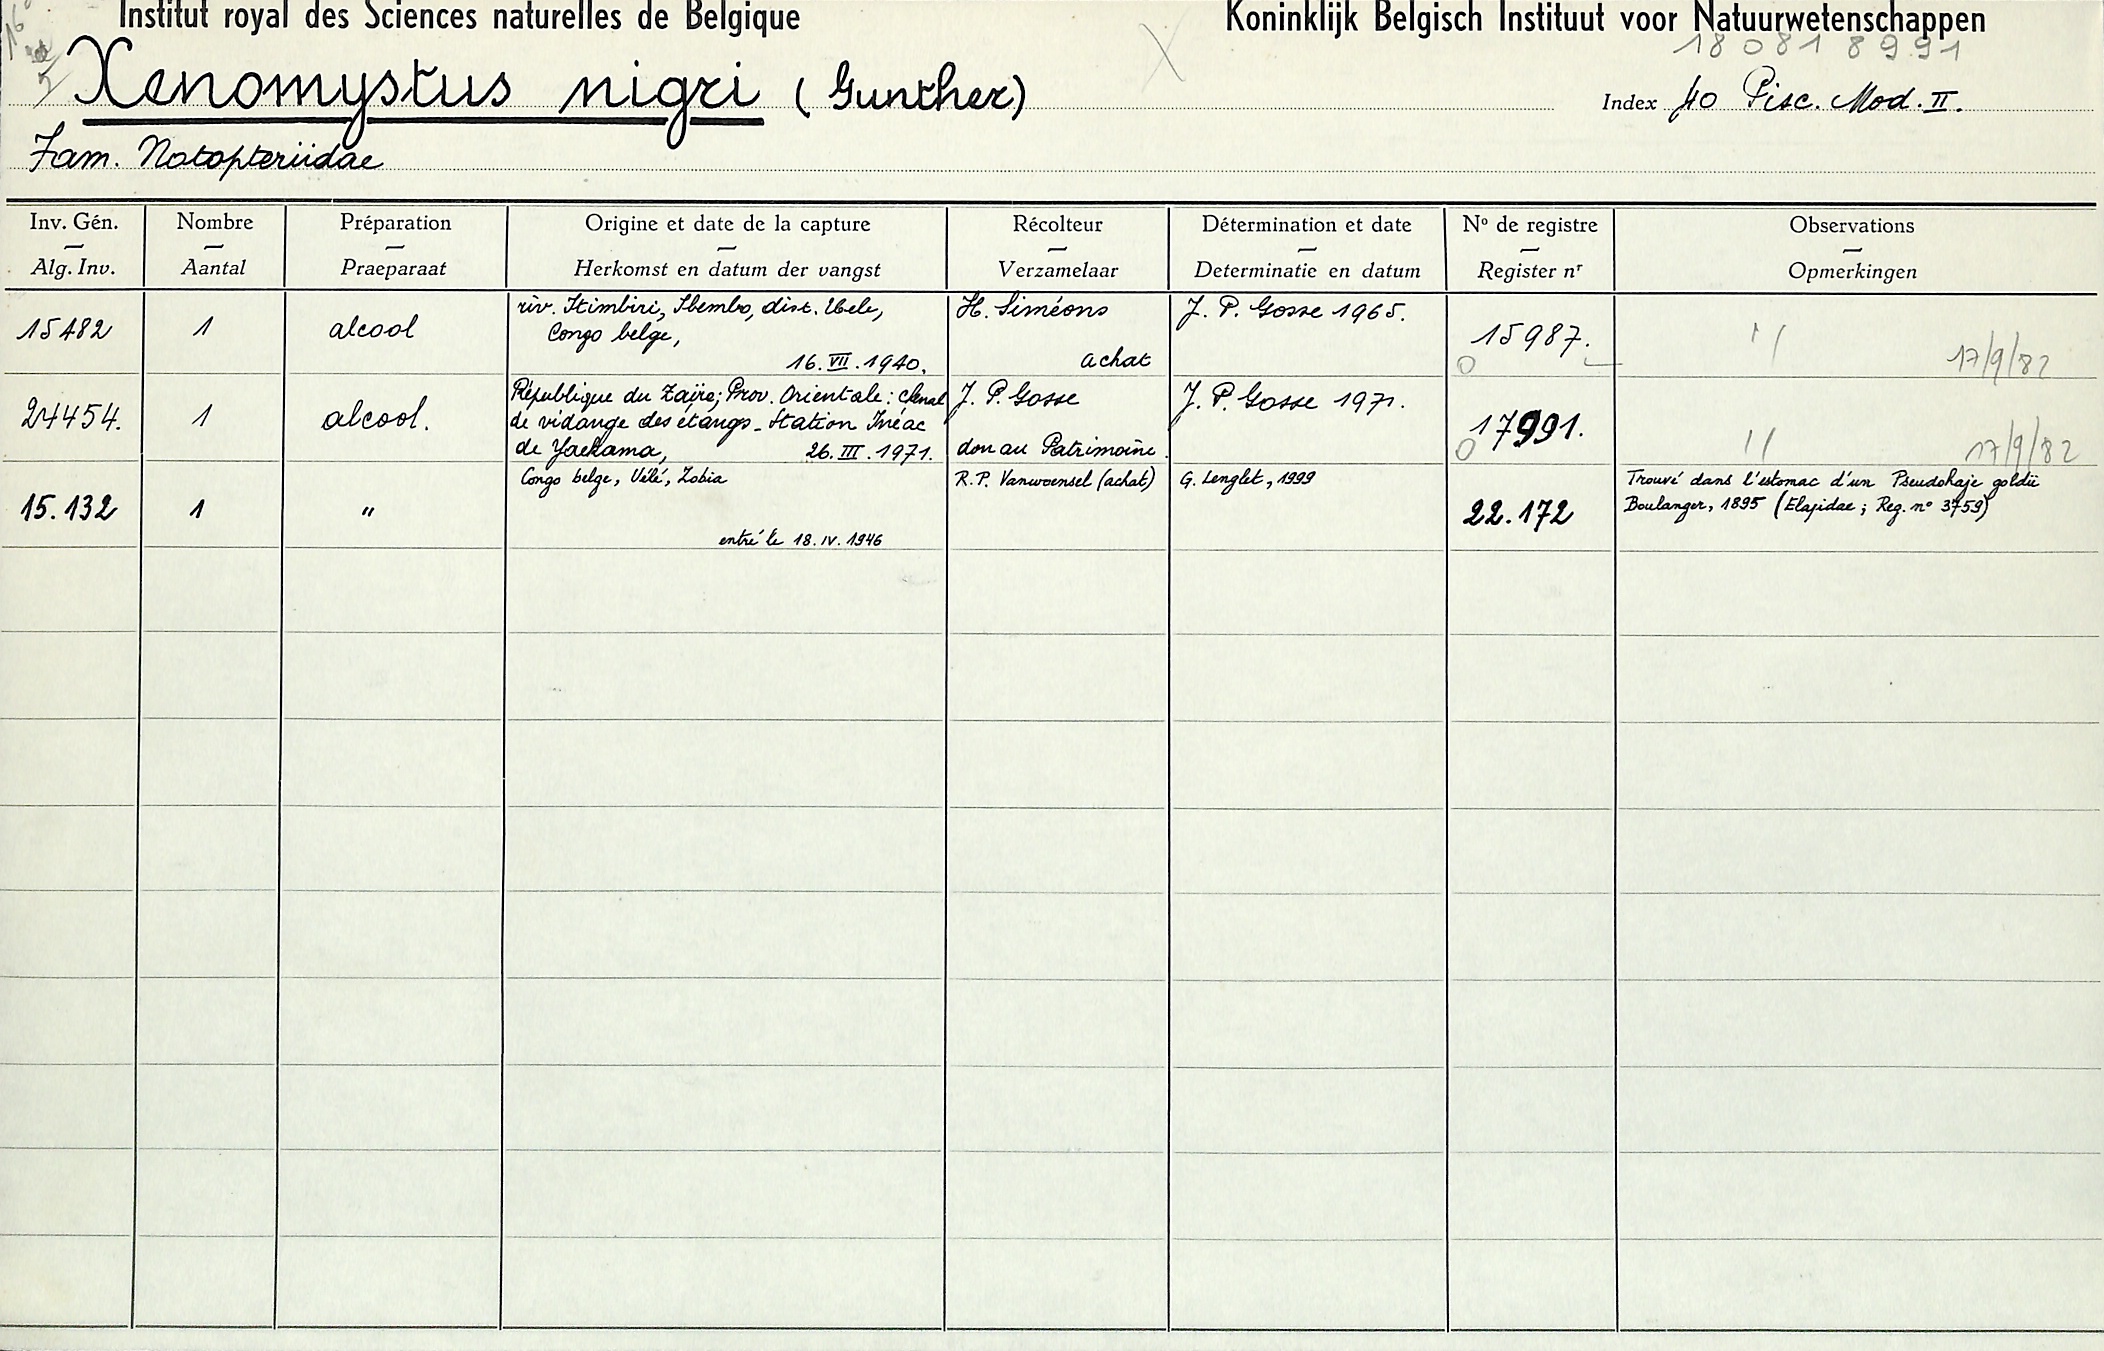 Institut royal des Sciences naturelles de Belgique
Koninklijk Belgisch Instituut voor Natuurwetenschappen
18081 8991
Xenomystus nigri (Gunther)
Index 40 Pisc. Mod. II.
Fam. Notopteriidae
Inv. Gén. Nombre Préparation Origine et date de la capture Récolteur Détermination et date Nº de registre Observations
Alg. Inv. Aantal Praeparaat Herkomst en datum der vangst Verzamelaar Determinatie en datum Register nr Opmerkingen
15482
1
alcool
riv. Itimbiri, Ibembo, dist. Uele,
Congo belge,
16. VII. 1940.
H. Siméons
achat
J. P. Gosse 1965.
15987.
17/9/82
24454.
1
alcool.
République du Zaïre; Prov. Orientale: chenal
de vidange des étangs - Station Inéac
de Yaekama, 26. III. 1971.
J. P. Gosse
don au Patrimoine.
J. P. Gosse 1971.
17991.
17/9/82
15.132
1
"
Congo belge, Uélé, Zobia
entré le 18. IV. 1946
R. P. Vanwoensel (achat)
G. Lenglet, 1999
22.172
Trouvé dans l'estomac d'un Pseudohaje goldii
Boulanger, 1895 (Elapidae; Reg. nº 3759)